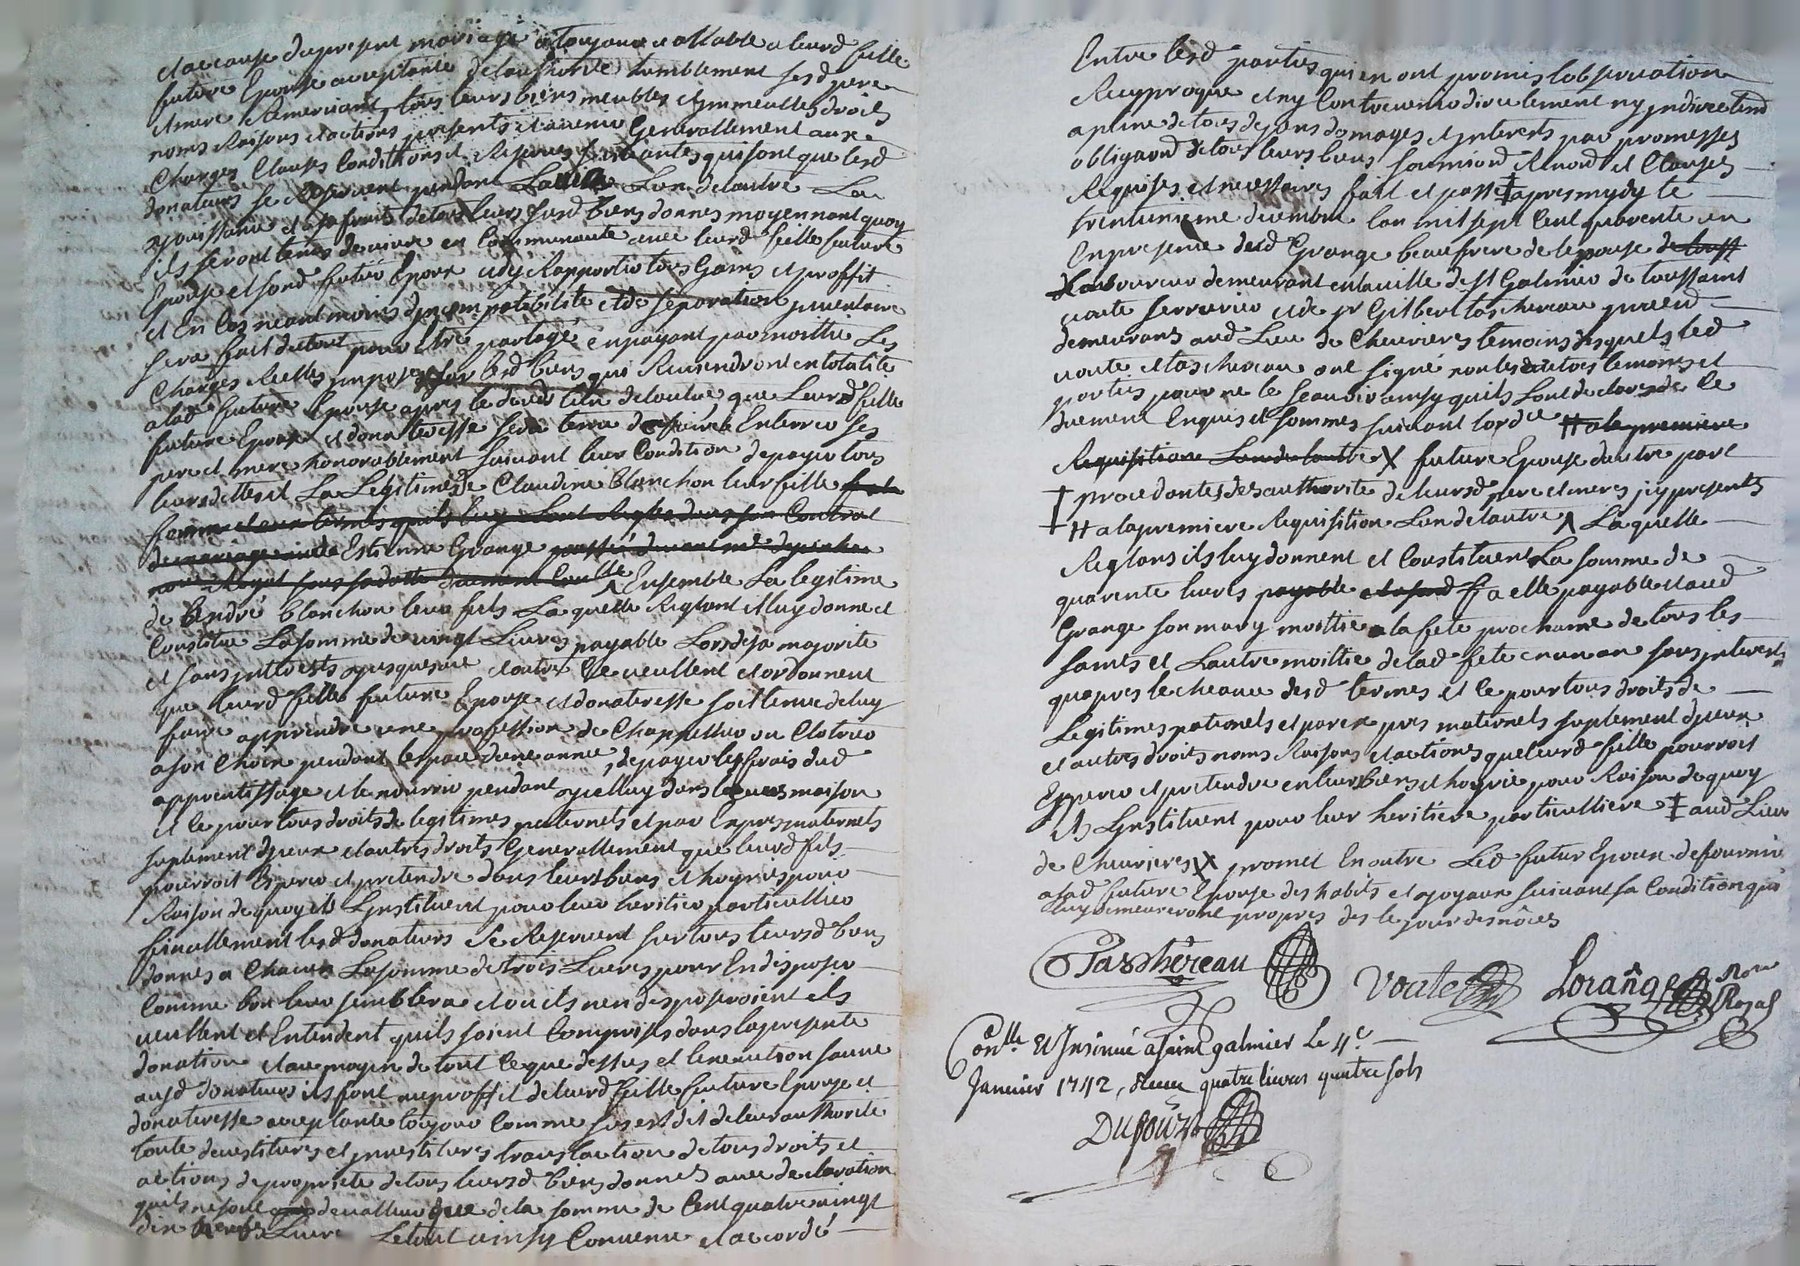 et a cause du present mariage et toujours vallable a leurd fille
future Epouse acceptante de lauthorité humblement sesd pere
et mere Remerciant, tous leurs biens meubles et jmmeubles droits
noms Raisons et actions presents et avenir Generallement aux
Charges Clauses Conditions et Reserves suivantes qui sont que lesd
donateurs se Reservent pendant La vie Lun de lautre La
jouissance et usufruit de tous leurs susd biens donnes moyennant quoy
ils seront tenus de vivre en Communauté avec leurd fille future
Epouse et sond futur Epoux et dy Rapporter tous Gains et proffit
et En Cas neantmoins djncompatibilité et de separation jnventaire
sera fait du tout pour Etre partagé en payant par moittié Les
Charges Reelles jmposes sur lesd biens qui Reviendront en totalité
alad future Epouse apres le deces Lun de lautre que Leurd fille
future Epouse et donateresse sera tenue de faire Enterrer ses
pere et mere honorablement suivant leur Condition de payer tous
leurs dettes et La Legitime de Claudine Blanchon leur fille
femme et aux termes quils luy Sont Regles dans son Contrat
de mariage avec Estienne Grange
Ensemble La legitime
de André Blanchon leur fils Laquelle Reglant et luy donne et
Constitue La somme de vingt Livres payable Lors de sa majorité
et sans jnterests jusques a ce et outre Ce veullent et ordonnent
que leurd fille future Epouse et donateresse soit tenue de luy
faire apprendre une profession de Chappellier ou Clotrier
a son Choix pendant lespace dune année, de payer les frais dud
apprentissage et le nourrir pendant jcelluy dans leurs maison
et ce pour tous droits de legitimes paternels et par Expres maternels
suplement djceux et autres droits Generallement que leurd fils
pourroit Esperer et pretendre dans leurs biens et hoyries pour
Raison de quoy ils Linstituent pour leur heritier particullier
finallement lesd donateurs se Reservent sur tous leursd biens
donnes a Chacun La somme de trois Livres pour En disposer
Comme bon leur semblera et ou ils nen disposeroient ils
veullent et Entendent quils soient Compris dans la presente
donation et au moyen de tout ce que dessus et lexecution sauve
ausd donateurs ils font au proffit de leurd fille future Epouse et
donateresse acceptante toujours Comme sus est dit de leur authorité
toute devestitures et jnvestitures translaction de tous droits et
actions de propriété de tous leursd biens donnes avec declaration
quils ne sont de valleur que de la somme de Cent quatre vingt
dix Livres Le tout ainsy Convenu et accordé
Entre lesd parties qui en ont promis lobservation
Reciproque et ny Contrevenir directement ny jndirectement
a peine de tous depens domages et jnterets par promesses
obligaond de tous leurs biens soumiond Renond et Clauses
Requises et necessaires fait et passé ‡ apres mydy le
trentunieme decembre lan mil sept Cent quarente un
En presence desd Grange beaufrere de lepouse
Laboureur demeurant en la ville de St Galmier de toussaint
voute serrurier et de sr Gilbert taschereau
demeurans aud Lieu de Chevrieres temoins desquels led
voute et taschereau ont signé non les autres temoins et
parties pour ne le Scavoir ainsy quils Lont declaré de Ce
duement Enquis et sommes suivant lordce H a la premiere
Requisition Lun de lautre X future Epouse dautre part
† procedantes de lauthorité de leursd pere et meres jcy presents
H a la premiere Requisition Lun de lautre ʌ Laquelle
Reglans ils luy donnent et Constituent La somme de
quarente livres payable a elle payable et aud
Grange son mary moittié a la fete prochaine de tous les
saints et Lautre moittié de lad fete en un an sans jnterests
quapres le cheance desd termes et ce pour tous droits de
Legitimes paternels et par expres maternels suplement djceux
et autres droits noms Raisons et actions que leurd fille pourroit
Esperer et pretendre en leurs biens et hoyrie pour Raison de quoy
ils Linstituent pour leur heritiere particulliere ‡ aud Lieu
de Chevrieres X promet En outre Led futur Epoux de fournir
alad future Epouse des habits et joyaux suivant sa Condition qui
luy demeureront propres des le jour des nôces
Taschereau Voute Lorange Nore Royal
Conlle Et Insinué a saint galmier Le 4e
Janvier 1742, Receu quatre livres quatre sols
Dupouzt